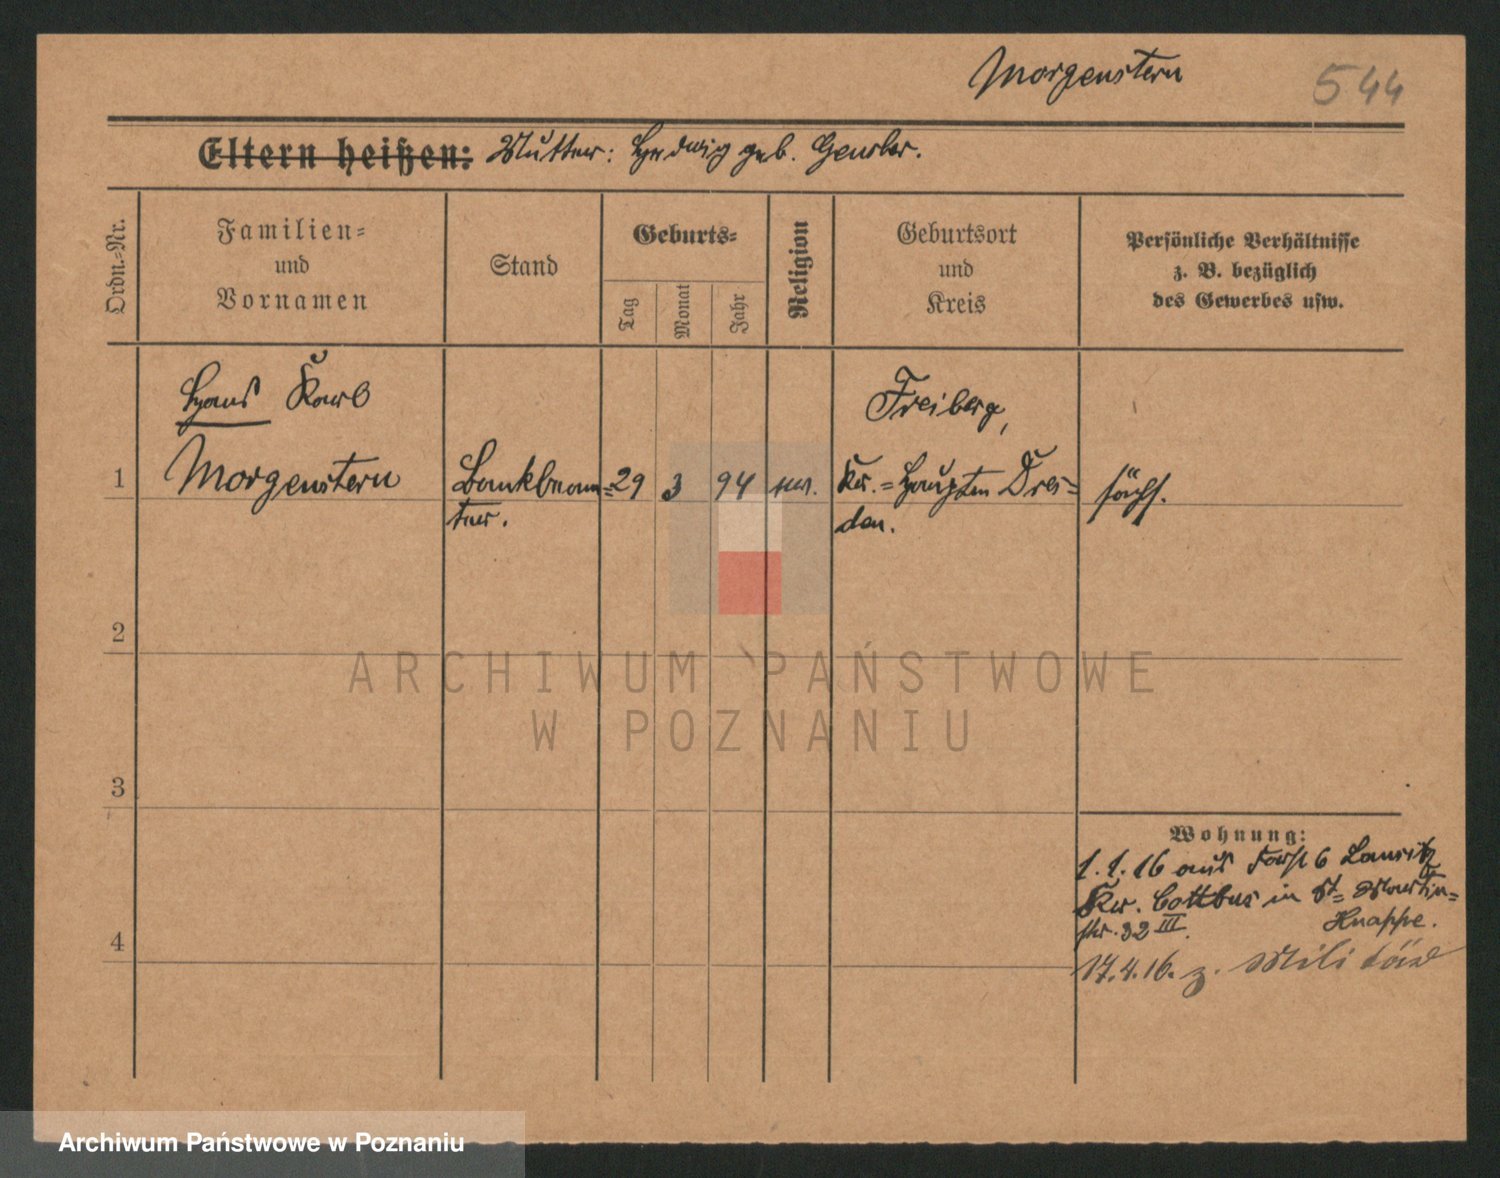 Morgenstern
544
Eltern heißen: Mutter: Hedwig geb. Gensler.
Ordn.-Nr.
Familien-
und
Vornamen
Stand
Geburts-
Tag
Monat
Jahr
Religion
Geburtsort
und
Kreis
Persönliche Verhältnisse
z. B. bezüglich
des Gewerbes usw.
Hans Karl
Freiberg,
1 Morgenstern Bankbeam= 29 3 94 ev. Kr.=Hauptm Dres= sächs.
ter. den.
2
3
4
Wohnung:
1.1.16 aus Forst Lausitz
Kr. Cottbus in St= Martin=
str. 32 III. Knappe.
17.4.16. z. Militär
ARCHIWUM PAŃSTWOWE
W POZNANIU
Archiwum Państwowe w Poznaniu